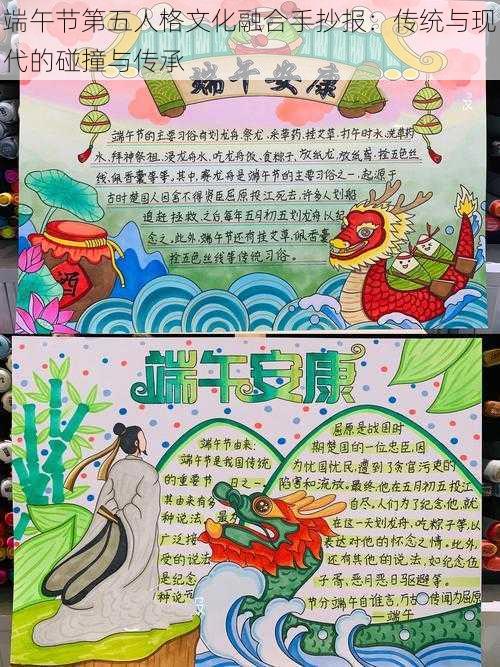 端午节第五人格文化融合手抄报：传统与现
代的碰撞与传承
端午安康
端午节的主要习俗有划龙舟、祭龙、采草药、挂艾草、打午时水、洗草药
水、拜神祭祖、浸龙舟水、吃龙舟饭、食粽子、放纸龙、放纸鸢、拴五色丝
线、佩香囊等等，其中，赛龙舟是端午节的主要习俗之一，起源于
古时楚国人因舍不得贤臣屈原投江死去，许多人划船
追赶拯救，之后每年五月初五划龙舟以纪
念之。此外，端午节还有挂艾草，佩香囊
拴五色丝线等传统习俗。
酒
端午安康
端午节由来：
端午节是我国传统
的重要节日之一，
其由来有多
种说法，最为
广泛接
受的说法
是纪念
种说法
屈原是战国时
期楚国的一位忠臣，因
为忧国忧民，遭到了贪官污吏的
陷害和流放。最终，他在五月初五投江
自尽。人们为了纪念他，就
在这一天划龙舟、吃粽子等以
表达对他的怀念之情。此外，
还有其他的说法，如纪念伍
子胥，恶月恶日驱避等。
节分端午自谁言，万古传闻为屈原
——端午